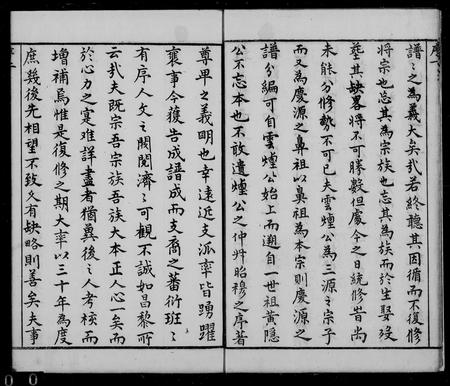 譜之之為義大矣哉若終聽其因循而不復修
將宗也忘其為宗族也忘其為族而於生娶歿
塟其缺畧將不可勝數但處今之日統修旹尚
未能分修勢不可已夫雲煙公為三源之宗子
而又為慶源之鼻祖以鼻祖為本宗則慶源之
譜分編可自雲煙公始上而遡自一世祖黃隱
公不忘本也不敢遺煙公之仲舛昭穆之序著
尊卑之義明也幸遠近支派率皆踴躍
襄事今獲告成譜成而支裔之蕃衍班之
有序人文之閥閱濟之可觀不誠如昌黎所
云哉夫既宗吾宗族吾族大本正人心一矣而
於心力之寔难詳盡者猶冀後之人考核而
增補焉惟是復修之期大率以三十年為度
庶幾後先相望不致久有缺略則善矣夫事
0 0